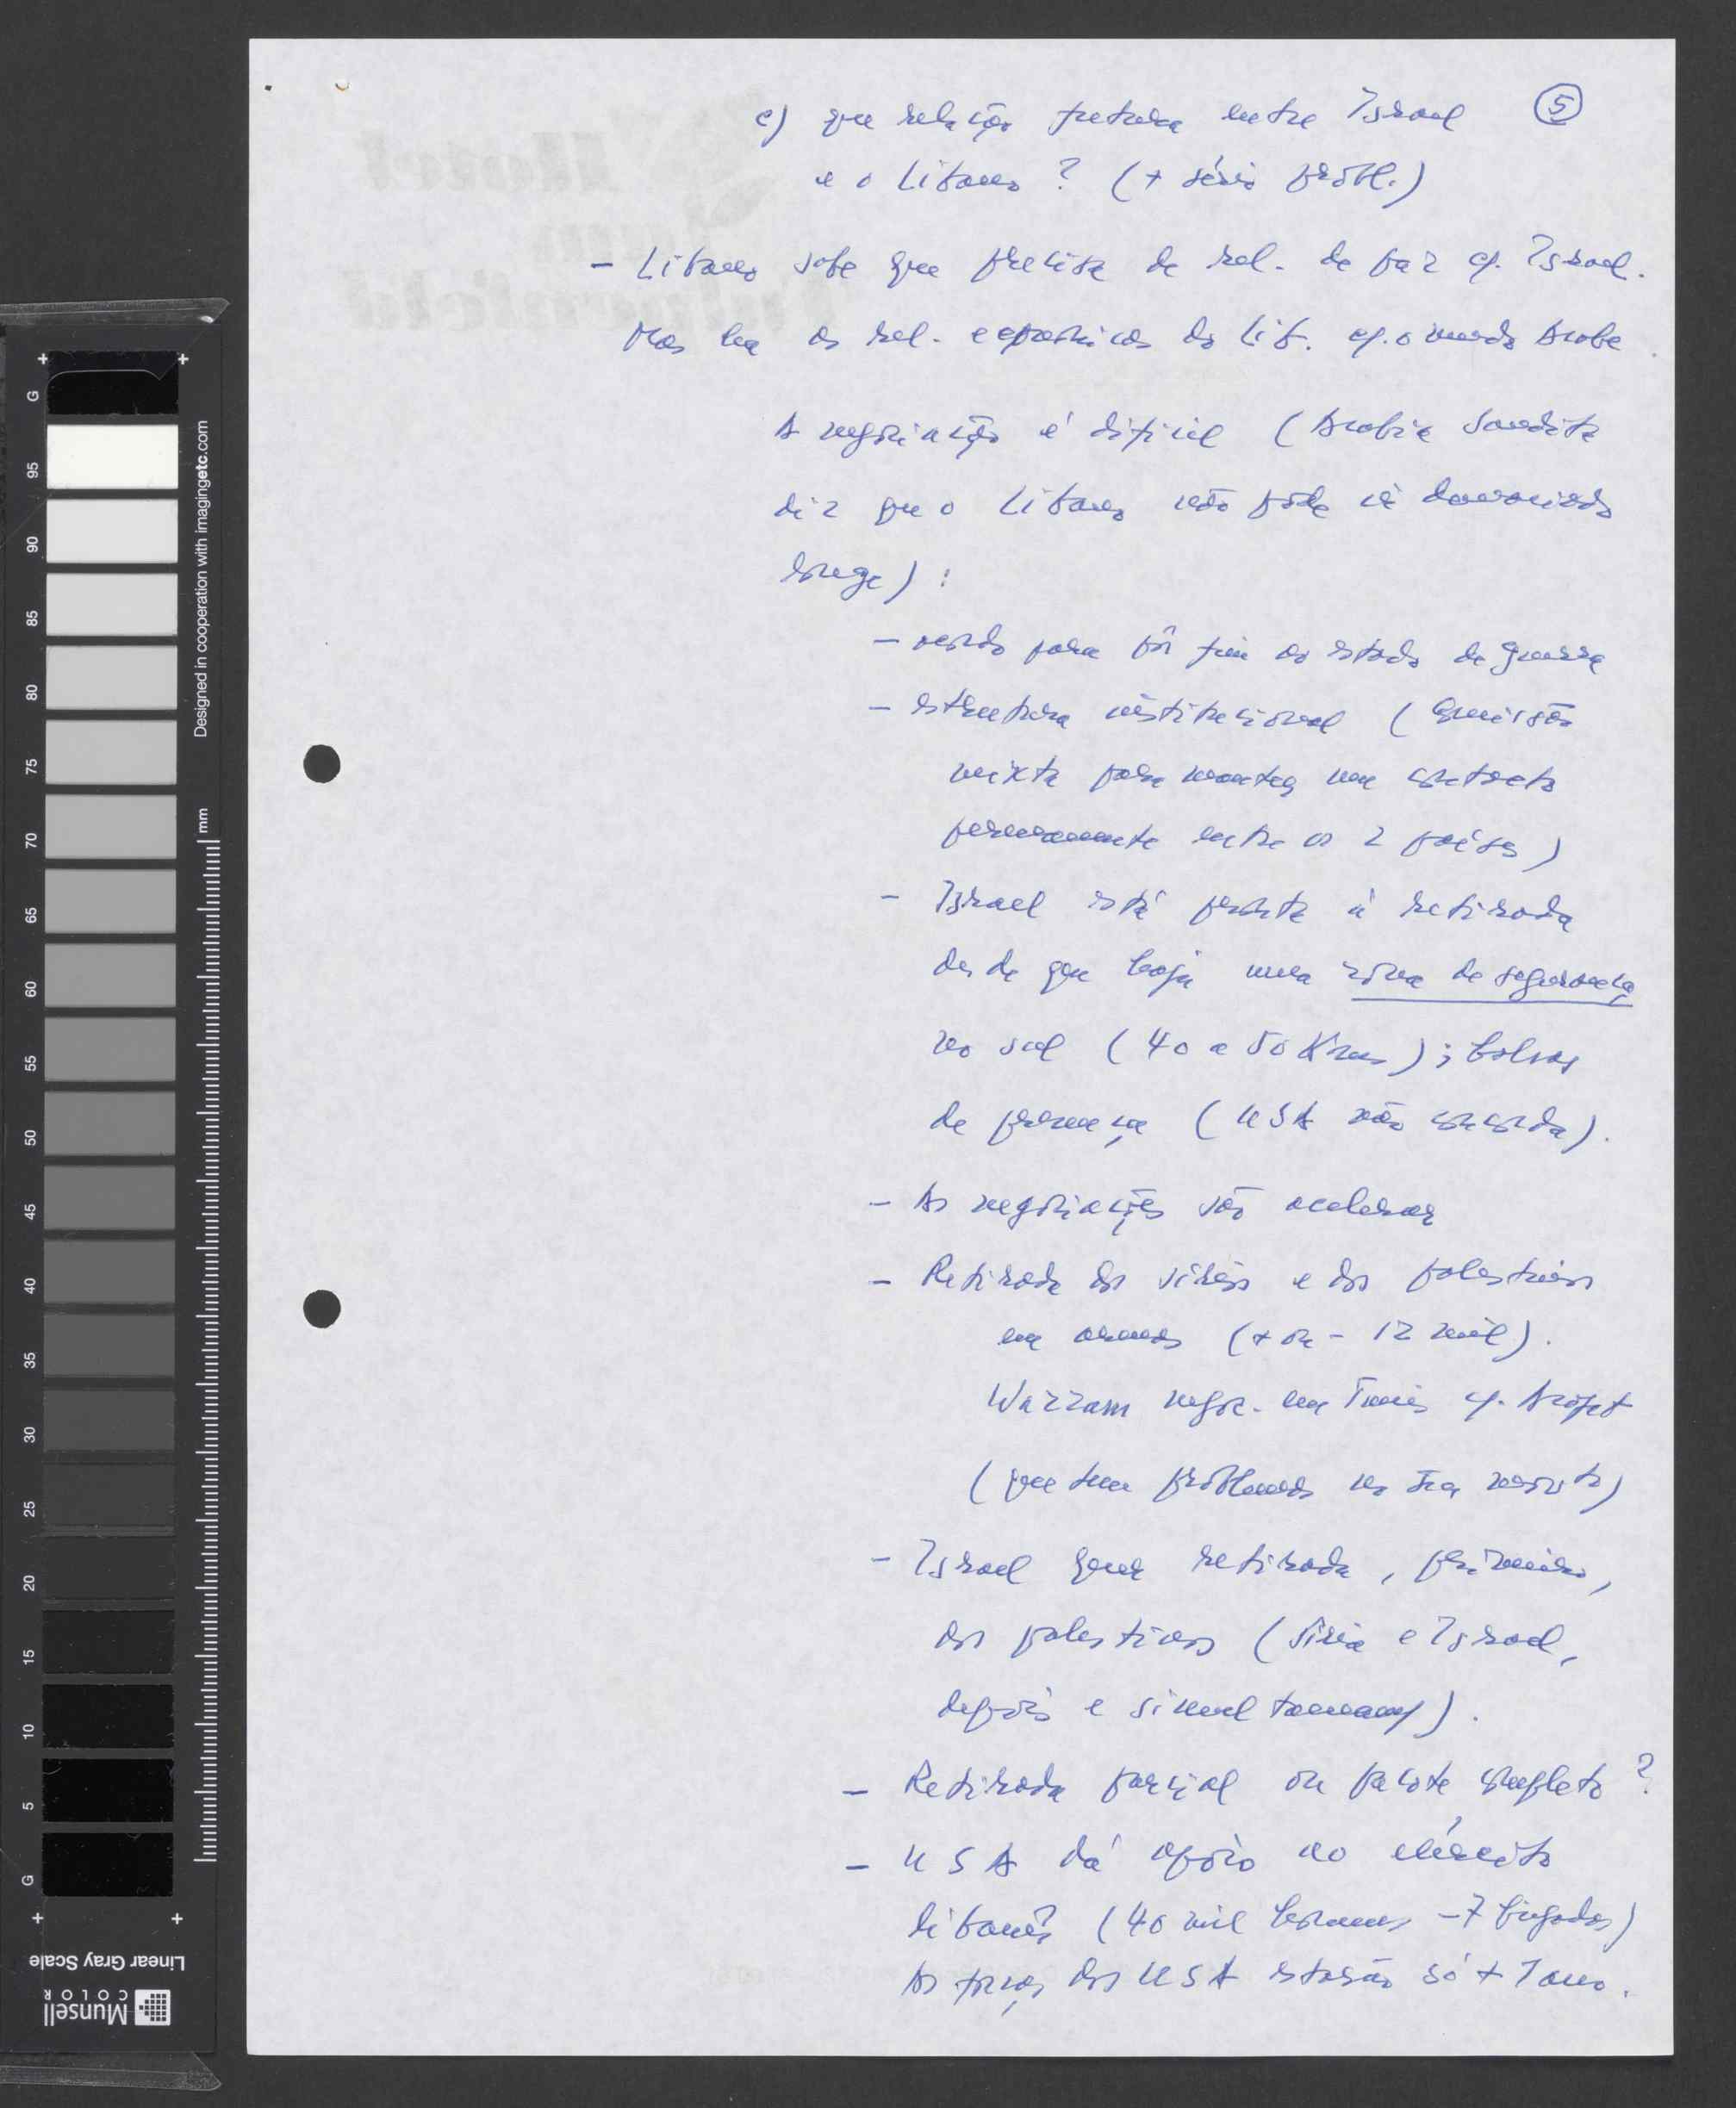 c) que relação futura entre Israel ⑤
e o Líbano? (+ sério probl.)
- Líbano sabe que precisa de rel. de paz c/. Israel.
Mas há as rel. económicas do Líb. c/. o mundo Árabe.
A negociação é difícil (Arábia Saudita
diz que o Líbano não pode ir demasiado
longe):
- acordo para pôr fim ao estado de guerra
- estrutura institucional (Comissão
mixta para manter um contacto
permanente entre os 2 países)
- Israel está pronto à retirada
desde que haja uma zona de segurança
no sul (40 a 50 Kms);
de presença (USA não concorda).
- As negociações vão acelerar
- Retirada dos sírios e dos palestinos
em armas (+ ou - 12 mil).
Wazzam negoc. em Tunis c/. Arafat
(que tem problemas)
- Israel quer retirada, primeiro,
dos palestinos (Síria e Israel,
depois e simultaneam/).
- Retirada parcial ou pacote completo?
- USA dá apoio ao exército
libanês (40 mil homens - 7 brigadas)
As forças dos USA estarão só + 1 ano.
Linear Gray Scale
Munsell
COLOR
Designed in cooperation with imagingetc.com
mm
G 95 90 85 80 75 70 65 60 55 50 45 40 35 30 25 20 15 10 5 G